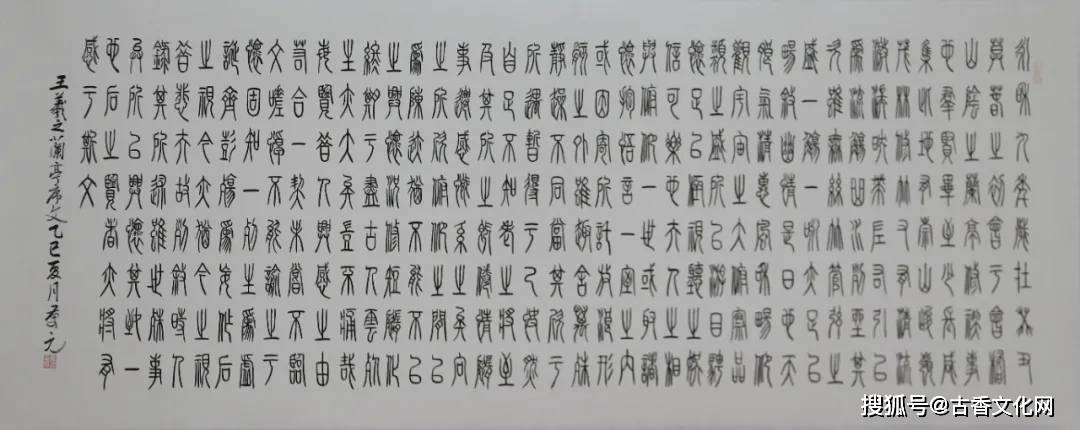 永和九年歲在癸丑
莫春之初會于會稽
山陰之蘭亭脩禊事
也群賢畢至少長咸
集此地有崇山峻領
茂林脩竹又有清流
激湍映帶左右引以
為流觴曲水列坐其
次雖無絲竹管弦之
盛一觴一詠亦足以
暢敘幽情是日也天
朗氣清惠風和暢仰
觀宇宙之大俯察品
類之盛所以游目騁
懷足以極視聽之娛
信可樂也夫人之相
與俯仰一世或取諸
懷抱悟言一室之內
或因寄所託放浪形
骸之外雖趣舍萬殊
靜躁不同當其欣于
所遇暫得于己快然
自足不知老之將至
及其所之既惓情隨
事遷感慨係之矣向
之所欣俛仰之間已
為陳迹猶不能不以
之興懷況修短隨化
終期于盡古人云死
生亦大矣豈不痛哉
每覽昔人興感之由
若合一契未嘗不臨
文嗟悼不能喻之于
懷固知一死生為虛
誕齊彭殤為妄作后
之視今亦猶今之視
昔悲夫故列敘時人
錄其所述雖世殊事
異所以興懷其致一
也后之覽者亦將有
感于斯文
王羲之蘭亭序文乙巳夏月春元
搜狐号@古香文化网